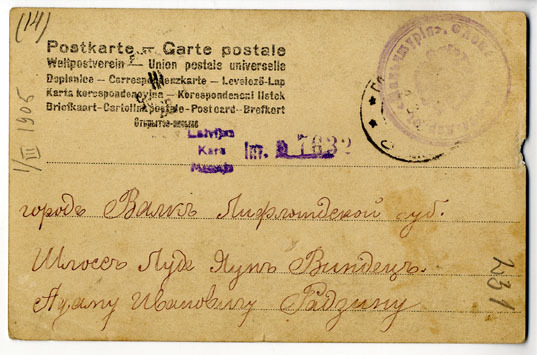 (14)
Postkarte — Carte postale
Weltpostverein — Union postale universelle
Dopisnice — Correspondenzkarte — Levelező-Lap
Karta korespondencyjna — Korespondencni listek
Briefkaart — Cartolina postale — Post card — Brefkort
Открытое письмо
1/III 1905
Latvijas
Kara
Muzejs
Inv. № 7632
городъ Валкъ Лифляндской губ.
Шлоссъ Луде Яунъ Виндецъ.
Адаму Ивановичу Радзину